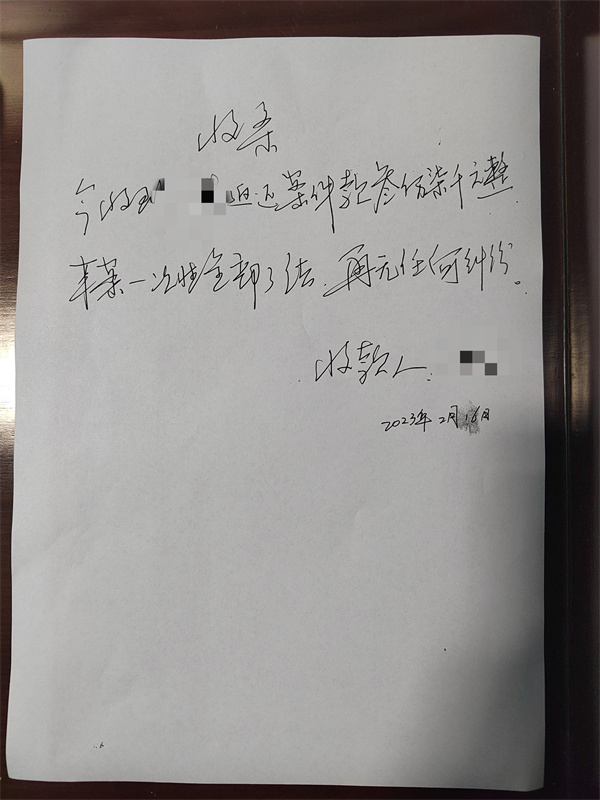 收条
今收到 还案件款叁万柒千元整
本案一次性全部了结，再无任何纠纷。
收款人：
2023年2月16日